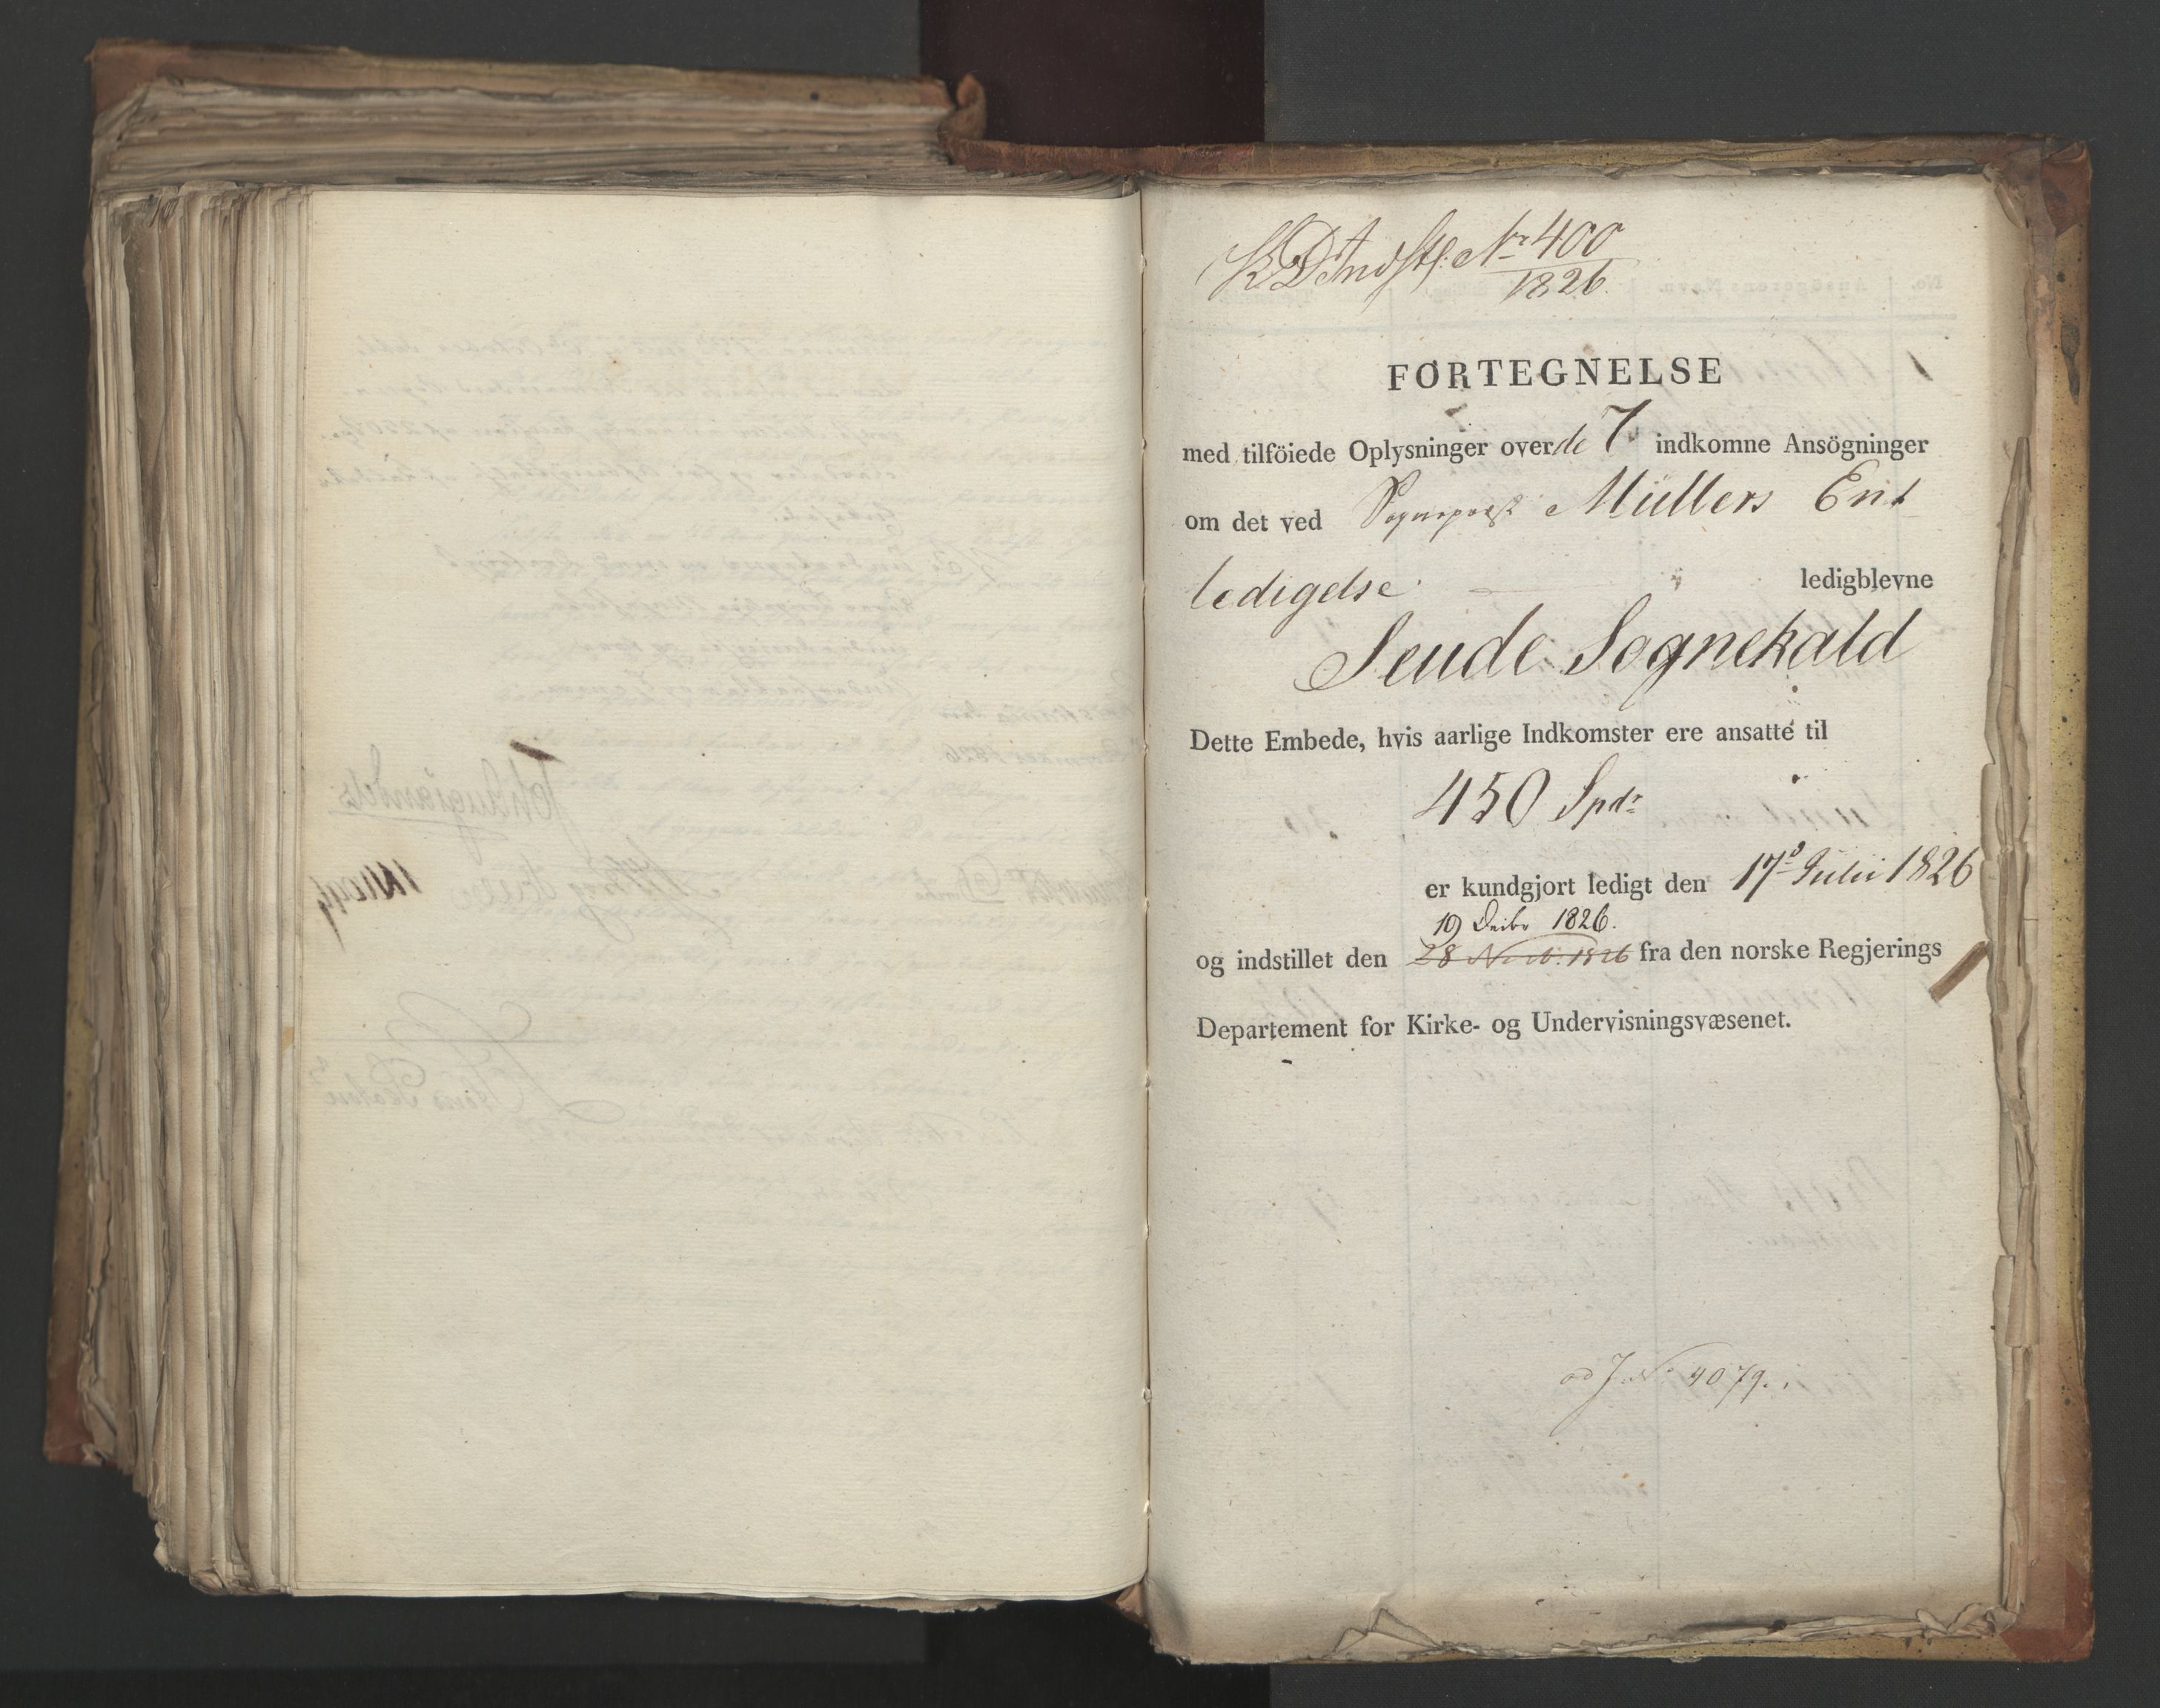 KD Indst: No 400
1826.
FORTEGNELSE
med tilföiede Oplysninger over de 7 indkomne Ansögninger
om det ved Sognepræst Müllers Ent
ledigelse ledigblevne
Seude Sognekald
Dette Embede, hvis aarlige Indkomster ere ansatte til
450 Spdr
er kundgjort ledigt den 17de Julii 1826
19 Decbr 1826.
og indstillet den 28 Novb: 1826 fra den norske Regjerings
Departement for Kirke- og Undervisningsvæsenet.
ad J. No 4079.